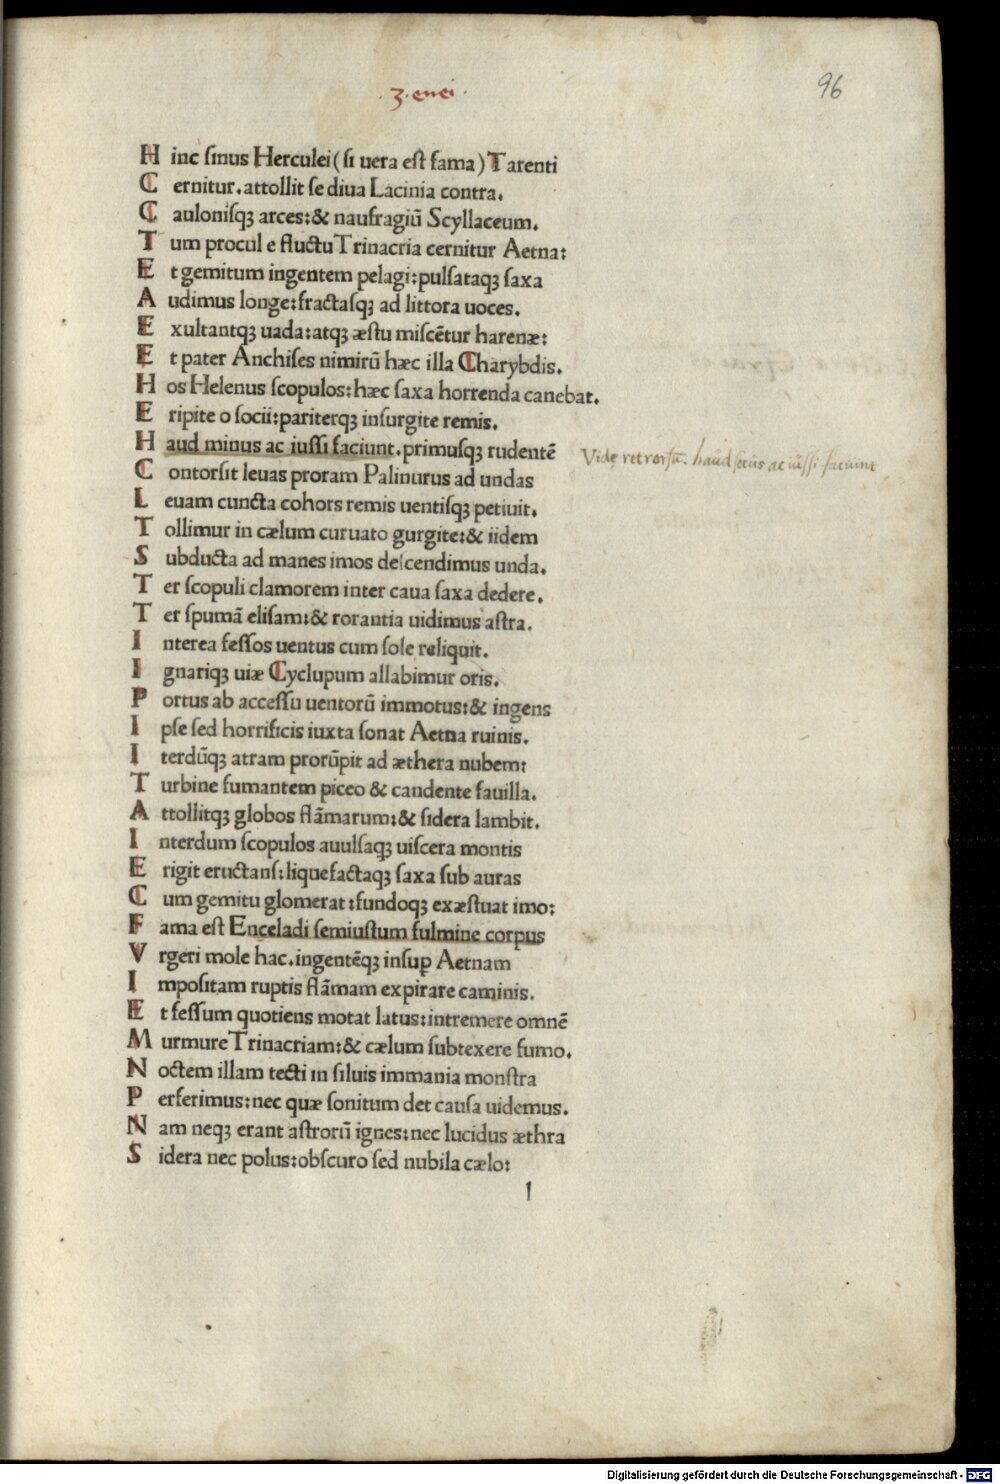 ·3·enei·
96
Hinc sinus Herculei (si uera est fama) Tarenti
Cernitur. attollit se diua Lacinia contra.
Caulonisqꝫ arces: & naufragiũ Scyllaceum.
Tum procul e fluctu Trinacria cernitur Aetna:
Et gemitum ingentem pelagi: pulsataqꝫ saxa
Audimus longe: fractasqꝫ ad littora uoces.
Exultantqꝫ uada: atqꝫ æstu miscẽtur harenæ:
Et pater Anchises nimirũ hæc illa Charybdis.
Hos Helenus scopulos: hæc saxa horrenda canebat.
Eripite o socii: pariterqꝫ insurgite remis.
Haud minus ac iussi faciunt. primusqꝫ rudentẽ
Vide retrorsũ. haud secus ac iussi faciunt
Contorsit leuas proram Palinurus ad undas
Leuam cuncta cohors remis uentisqꝫ petiuit.
Tollimur in cælum curuato gurgite: & iidem
Subducta ad manes imos descendimus unda.
Ter scopuli clamorem inter caua saxa dedere.
Ter spumã elisam: & rorantia uidimus astra.
Interea fessos uentus cum sole reliquit.
Ignariqꝫ uiæ Cyclupum allabimur oris.
Portus ab accessu uentorũ immotus: & ingens
Ipse sed horrificis iuxta sonat Aetna ruinis.
Iterdũqꝫ atram prorũpit ad æthera nubem:
Turbine fumantem piceo & candente fauilla.
Attollitqꝫ globos flãmarum: & sidera lambit.
Interdum scopulos auulsaqꝫ uiscera montis
Erigit eructans: liquefactaqꝫ saxa sub auras
Cum gemitu glomerat: fundoqꝫ exæstuat imo:
Fama est Enceladi semiustum fulmine corpus
Vrgeri mole hac. ingentẽqꝫ insuꝑ Aetnam
Impositam ruptis flãmam expirare caminis.
Et fessum quotiens motat latus: intremere omnẽ
Murmure Trinacriam: & cælum subtexere fumo.
Noctem illam tecti in siluis immania monstra
Perferimus: nec quæ sonitum det causa uidemus.
Nam neqꝫ erant astrorũ ignes: nec lucidus æthra
Sidera nec polus: obscuro sed nubila cælo:
l
Digitalisierung gefördert durch die Deutsche Forschungsgemeinschaft - DFG